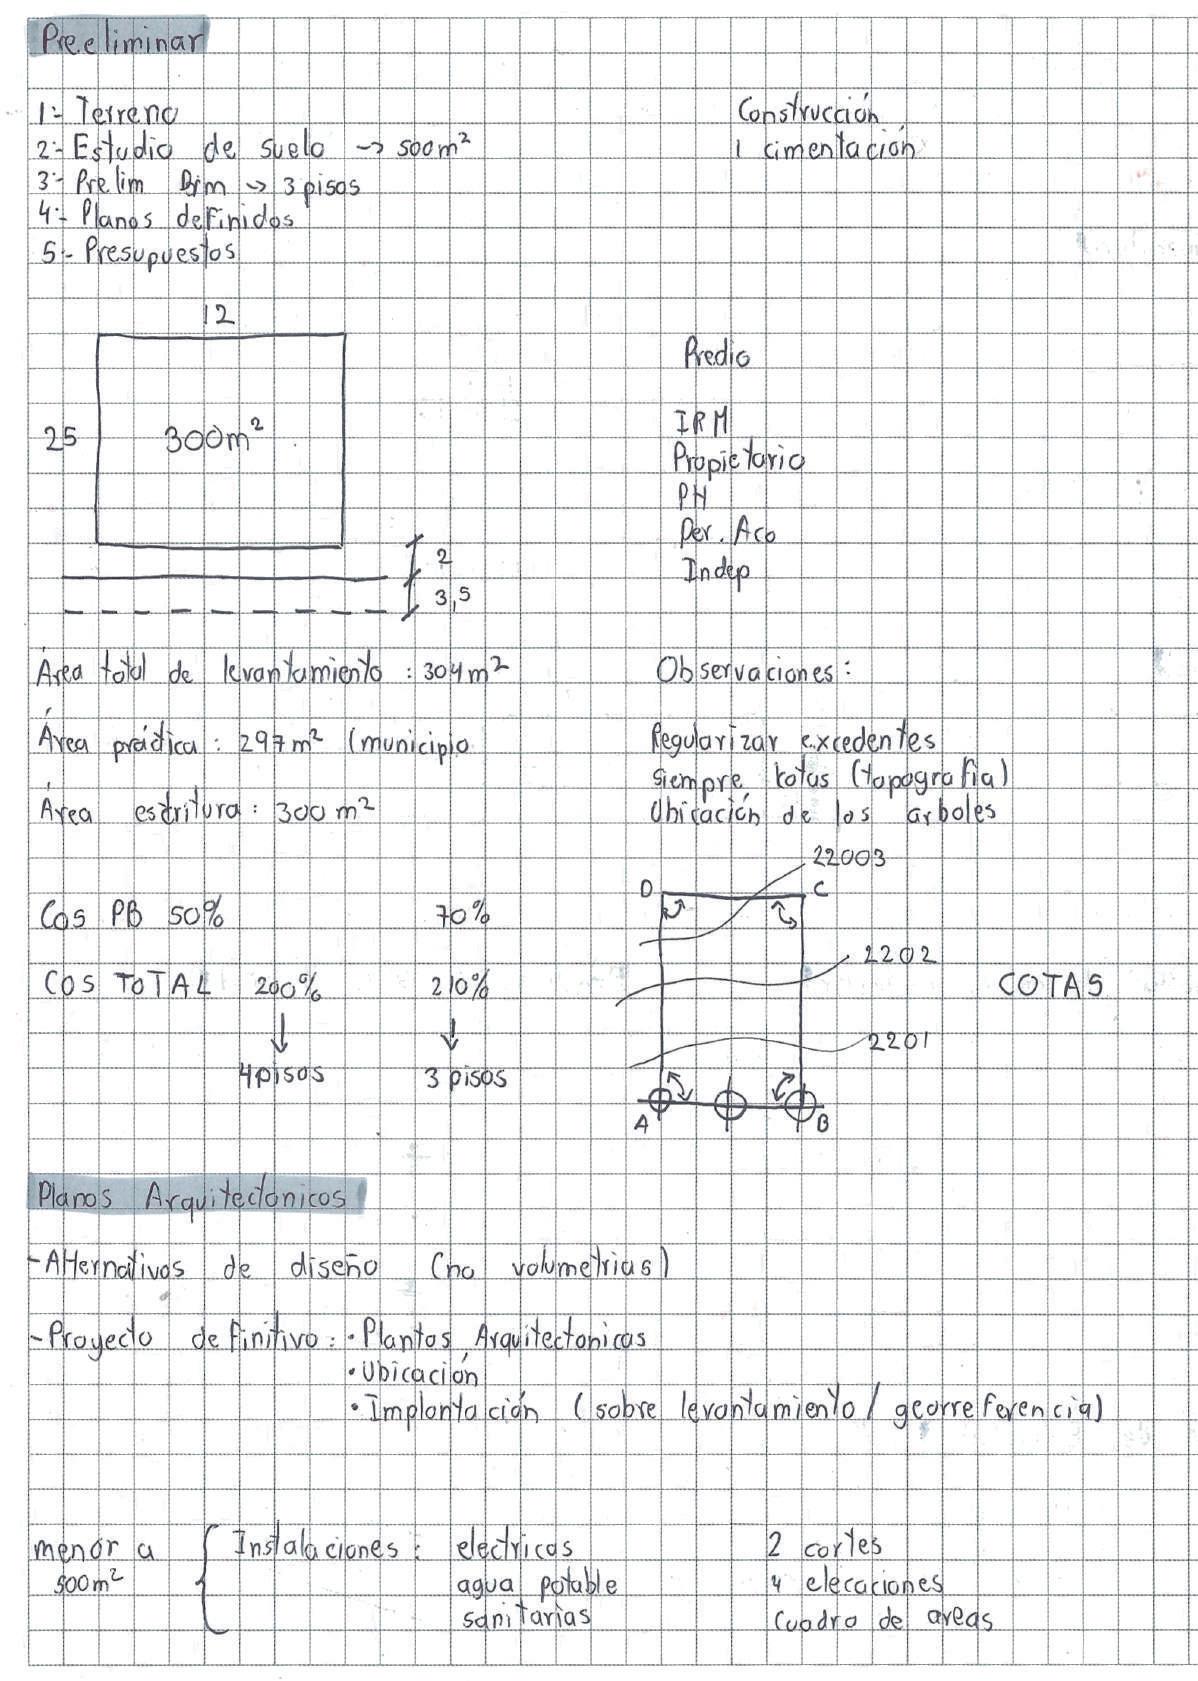 Preeliminar
1:- Terreno
2:- Estudio de suelo -> 500m²
3:- Prelim Bim -> 3 pisos
4:- Planos definidos
5:- Presupuestos
Construcción
1 cimentación
12
25
300m²
2
3,5
Predio
IRM
Propietario
PH
Per. Aco
Indep
Área total de levantamiento : 304m²
Área práctica : 297m² (municipio
Área escritura : 300m²
Observaciones:
Regularizar excedentes
siempre kotas (topografia)
Ubicación de los arboles
Cos PB 50% 70%
COS TOTAL 200% 210%
4pisos 3 pisos
22003
D C
2202
COTAS
2201
A B
Planos Arquitectonicos
-Alternativos de diseño (no volumetrias)
-Proyecto definitivo: · Plantas Arquitectonicas
· Ubicación
· Implantación (sobre levantamiento / georreferencia)
menor a
500m²
Instalaciones : electricas
agua potable
sanitarias
2 cortes
4 elecaciones
Cuadro de areas